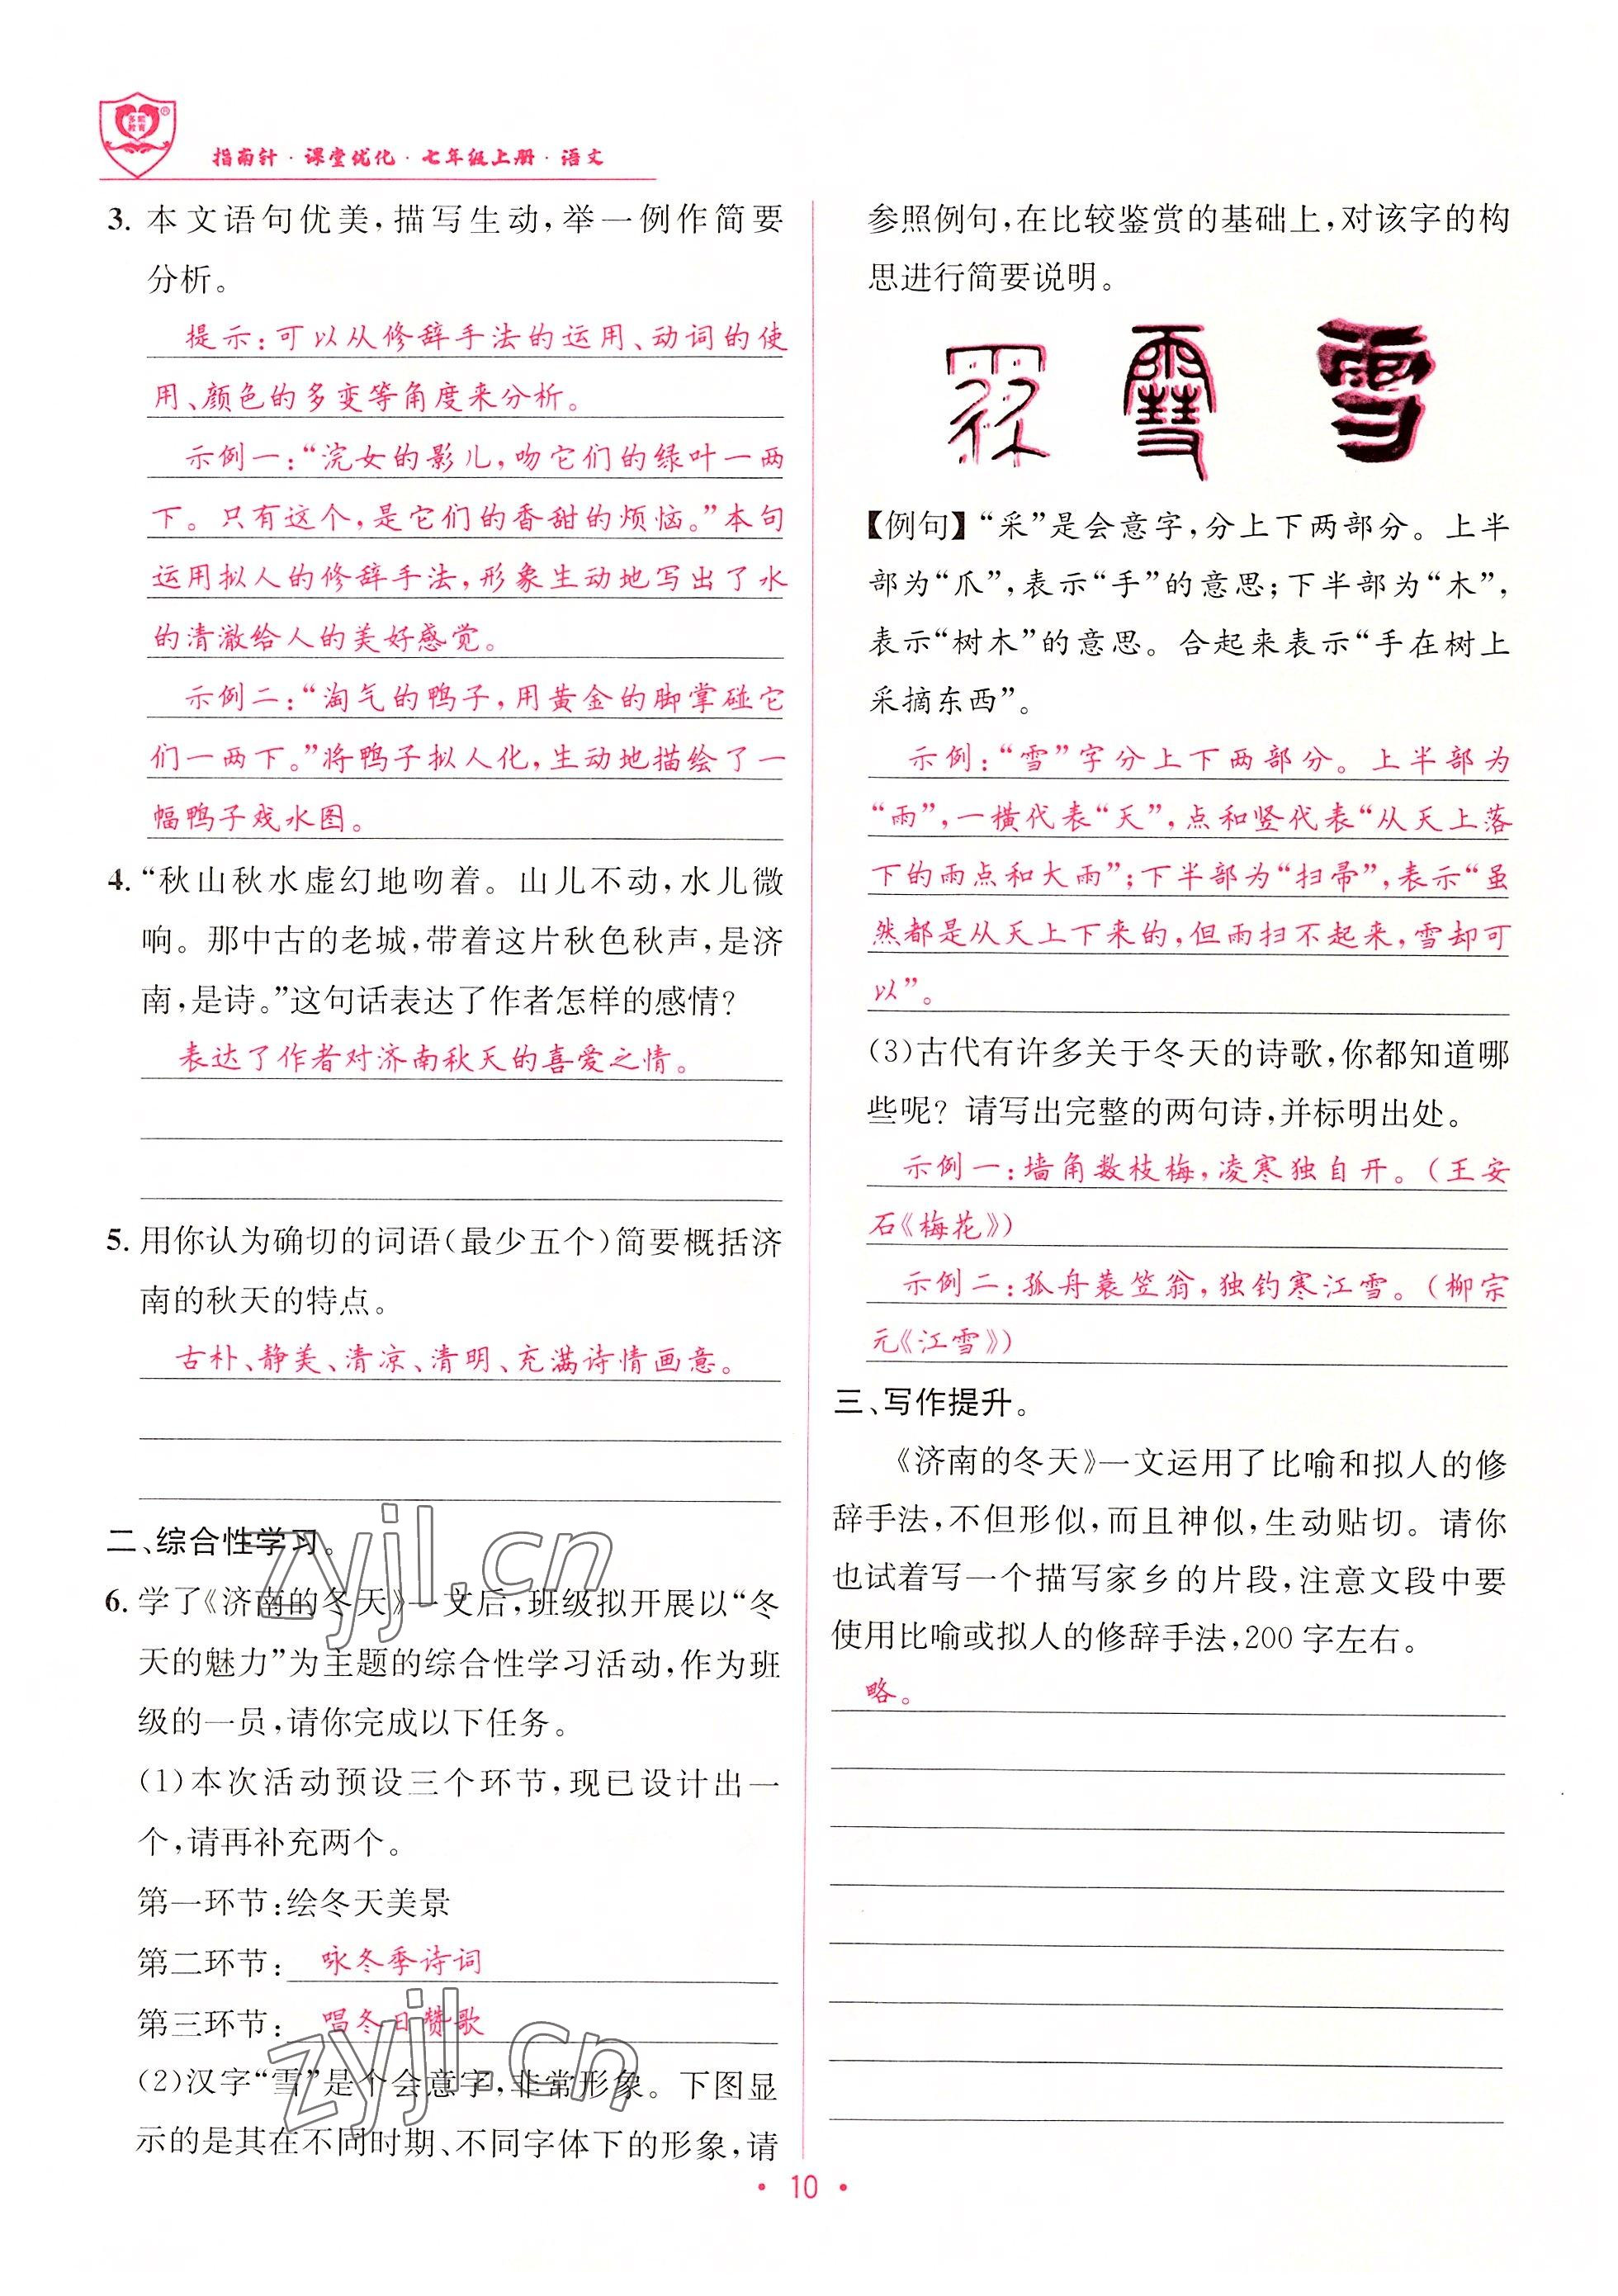 多能
教育
®
指南针·课堂优化·七年级上册·语文
3. 本文语句优美,描写生动,举一例作简要
分析。
提示:可以从修辞手法的运用、动词的使
用、颜色的多变等角度来分析。
示例一:“浣女的影儿,吻它们的绿叶一两
下。只有这个,是它们的香甜的烦恼。”本句
运用拟人的修辞手法,形象生动地写出了水
的清澈给人的美好感觉。
示例二:“淘气的鸭子,用黄金的脚掌碰它
们一两下。”将鸭子拟人化,生动地描绘了一
幅鸭子戏水图。
4. “秋山秋水虚幻地吻着。山儿不动,水儿微
响。那中古的老城,带着这片秋色秋声,是济
南,是诗。”这句话表达了作者怎样的感情?
表达了作者对济南秋天的喜爱之情。
5. 用你认为确切的词语(最少五个)简要概括济
南的秋天的特点。
古朴、静美、清凉、清明、充满诗情画意。
二、综合性学习。
6. 学了《济南的冬天》一文后,班级拟开展以“冬
天的魅力”为主题的综合性学习活动,作为班
级的一员,请你完成以下任务。
(1)本次活动预设三个环节,现已设计出一
个,请再补充两个。
第一环节:绘冬天美景
第二环节: 咏冬季诗词
第三环节: 唱冬日赞歌
(2)汉字“雪”是个会意字,非常形象。下图显
示的是其在不同时期、不同字体下的形象,请
参照例句,在比较鉴赏的基础上,对该字的构
思进行简要说明。
雪
【例句】“采”是会意字,分上下两部分。上半
部为“爪”,表示“手”的意思;下半部为“木”,
表示“树木”的意思。合起来表示“手在树上
采摘东西”。
示例:“雪”字分上下两部分。上半部为
“雨”,一横代表“天”,点和竖代表“从天上落
下的雨点和大雨”;下半部为“扫帚”,表示“虽
然都是从天上下来的,但雨扫不起来,雪却可
以”。
(3)古代有许多关于冬天的诗歌,你都知道哪
些呢? 请写出完整的两句诗,并标明出处。
示例一:墙角数枝梅,凌寒独自开。(王安
石《梅花》)
示例二:孤舟蓑笠翁,独钓寒江雪。(柳宗
元《江雪》)
三、写作提升。
《济南的冬天》一文运用了比喻和拟人的修
辞手法,不但形似,而且神似,生动贴切。请你
也试着写一个描写家乡的片段,注意文段中要
使用比喻或拟人的修辞手法,200 字左右。
略。
zyjl.cn
zyjl.cn
· 10 ·